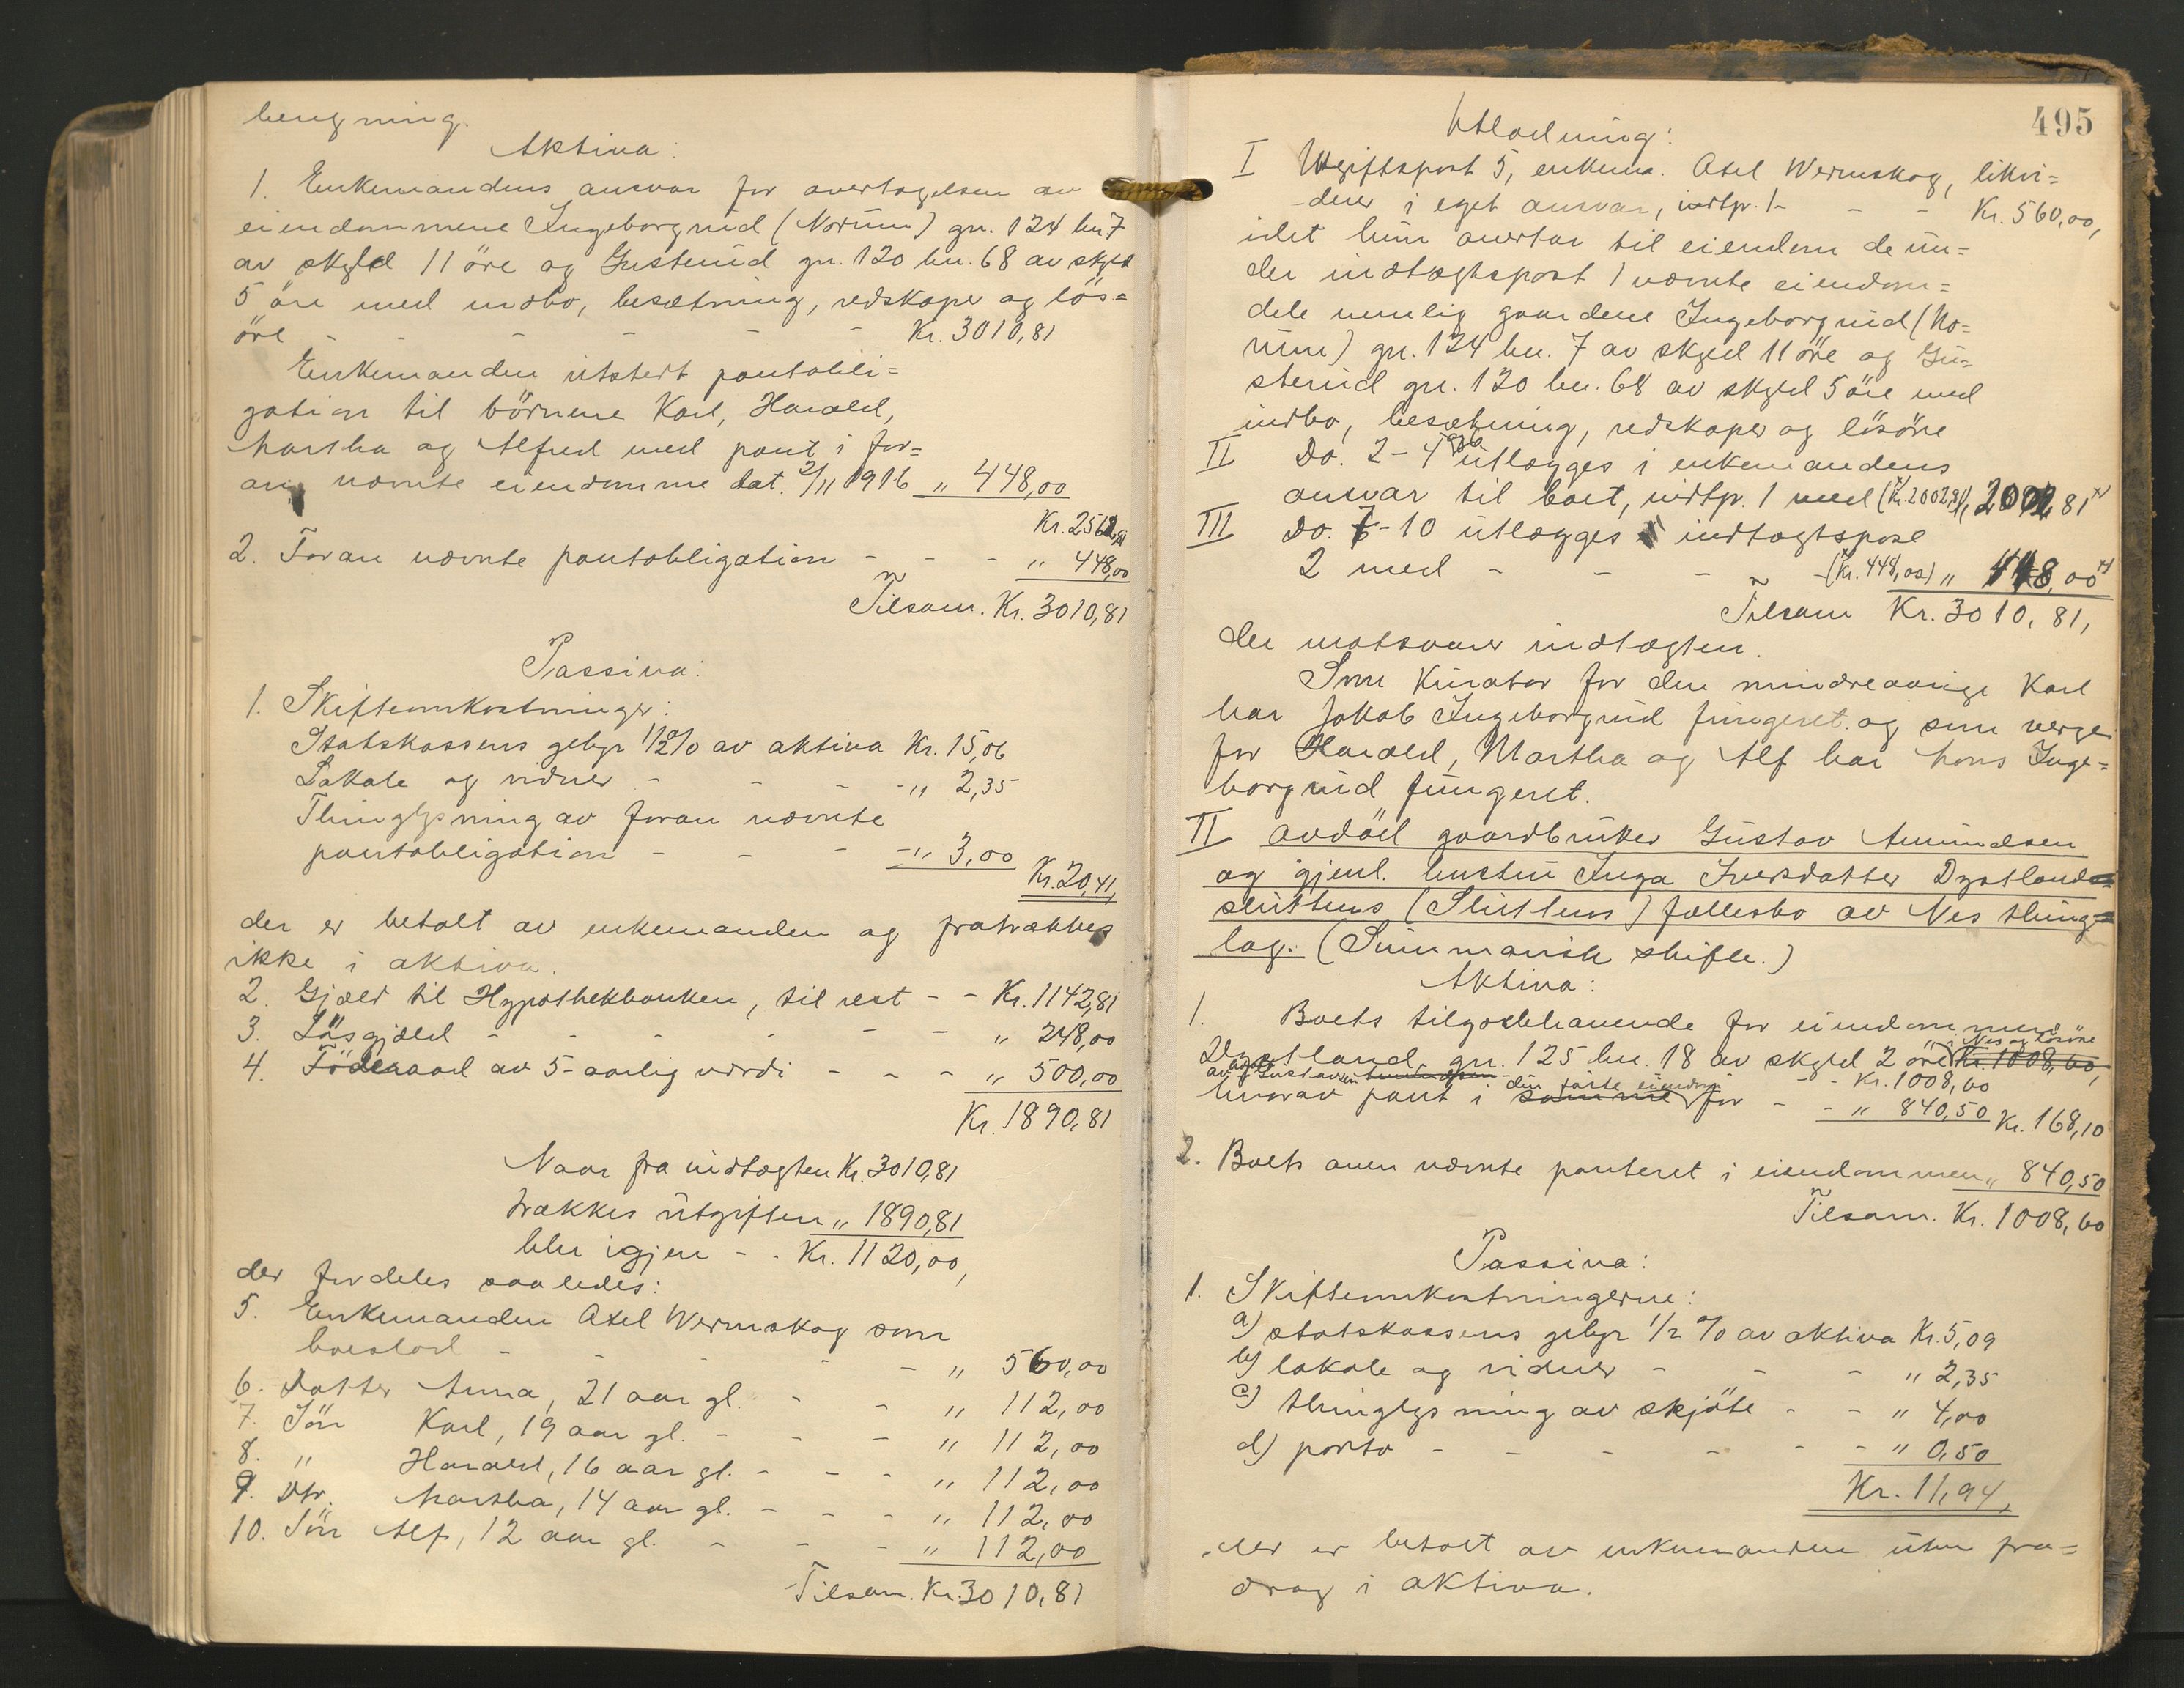 beregning.
Aktiva:
1. Enkemandens ansvar for overtagelsen av
eiendommene Ingeborgrud (Norum) gn. 124 bn 7
av skyld 11 öre og Gusterud gn. 120 bn. 68 av skyld
5 öre med indbo, besætning, redskaper og lös=
öre - - - - - Kr. 3010,81
Enkemanden utstedt pantobli=
gation til börnene Karl, Harald,
Martha og Alfred med pant i for=
an nævnte eiendomme dat. 2/11 1916 „ 448,00
Kr. 2562,81
2. Foran nævnte pantobligation - - - „ 448,00
Tilsam. Kr. 3010,81
Passiva:
1. Skifteomkostninger:
Statskassens gebyr 1/2 % av aktiva Kr. 15,06
Lokale og vidner - - - - „ 2,35
Thinglysning av foran nævnte
pantobligation - - - - „ 3,00
Kr. 20,41,
der er betalt av enkemanden og fratrækkes
ikke i aktiva.
2. Gjæld til Hypothekbanken, til rest - - Kr. 1142,81
3. Lösgjæld - - - - - - „ 248,00
4. Föderaad av 5-aarlig værdi - - - „ 500,00
Kr. 1890,81
Naar fra indtægten Kr. 3010,81
trækkes utgiften „ 1890,81
blir igjen - - Kr. 1120,00,
der fordeles saaledes:
5. Enkemanden Axel Wermskog som
boeslod - - - - - „ 560,00
6. Datter Anna, 21 aar gl. - - „ 112,00
7. Sön Karl, 19 aar gl. - - - „ 112,00
8. „ Harald, 16 aar gl. - - - „ 112,00
9. Dtr. Martha, 14 aar gl. - - - „ 112,00
10. Sön Alf, 12 aar gl. - - - „ 112,00
Tilsam. Kr. 3010,81
495
Utlodning:
I Utgiftspost 5, enkem. Axel Wermskog, likvi=
derer i eget ansvar, indtp. 1 - - - Kr. 560,00,
idet hun overtar til eiendom de un=
der indtægtspost 1 nævnte eiendom=
dele nemlig gaardene Ingeborgrud (No=
rum) gn. 124 bn. 7 av skyld 11 öre og Gu=
sterud gn. 120 bn. 68 av skyld 5 öre med
indbo, besætning, redskaper og lösöre
II Do. 2-4 og 6 utlægges i enkemandens
ansvar til boet, indtp. 1 med (Kr. 2002,81) „ 2002,81
III Do. 7-10 utlægges i indtægtspost
2 med - - - - (Kr. 448,00) „ 448,00
Tilsam Kr. 3010,81,
der motsvarer indtægten.
Som Kurator for den mindreaarige Karl
har Jakob Ingeborgrud fungeret og som verge
for Harald, Martha og Alf har Hans Inge=
borgrud fungeret.
II avdöd gaardbruker Gustav Amundsen
og gjenl. hustru Inga Iversdatter Dystland=
sluttens (Sluttens) fællesbo av Nes thing=
lag. (Summarisk skifte.)
Aktiva:
1. Boets tilgodehavende for eiendommen
i Nes og lösöre
Dystland gn. 125 bn. 18 av skyld 2 öre Kr. 1008,60,
Kr. 1008,60
hvorav pant i samme den faste eiendom for - - „ 840,50 Kr. 168,10
2. Boets oven nævnte panteret i eiendommen „ 840,50
Tilsam. Kr. 1008,60
Passiva:
1. Skifteomkostningerne:
a) statskassens gebyr 1/2 % av aktiva Kr. 5,09
b) lokale og vidner - - - „ 2,35
c) thinglysning av skjöte - - „ 4,00
d) porto - - - - - - „ 0,50
Kr. 11,94,
der er betalt av enkemanden uten fra=
drag i aktiva.